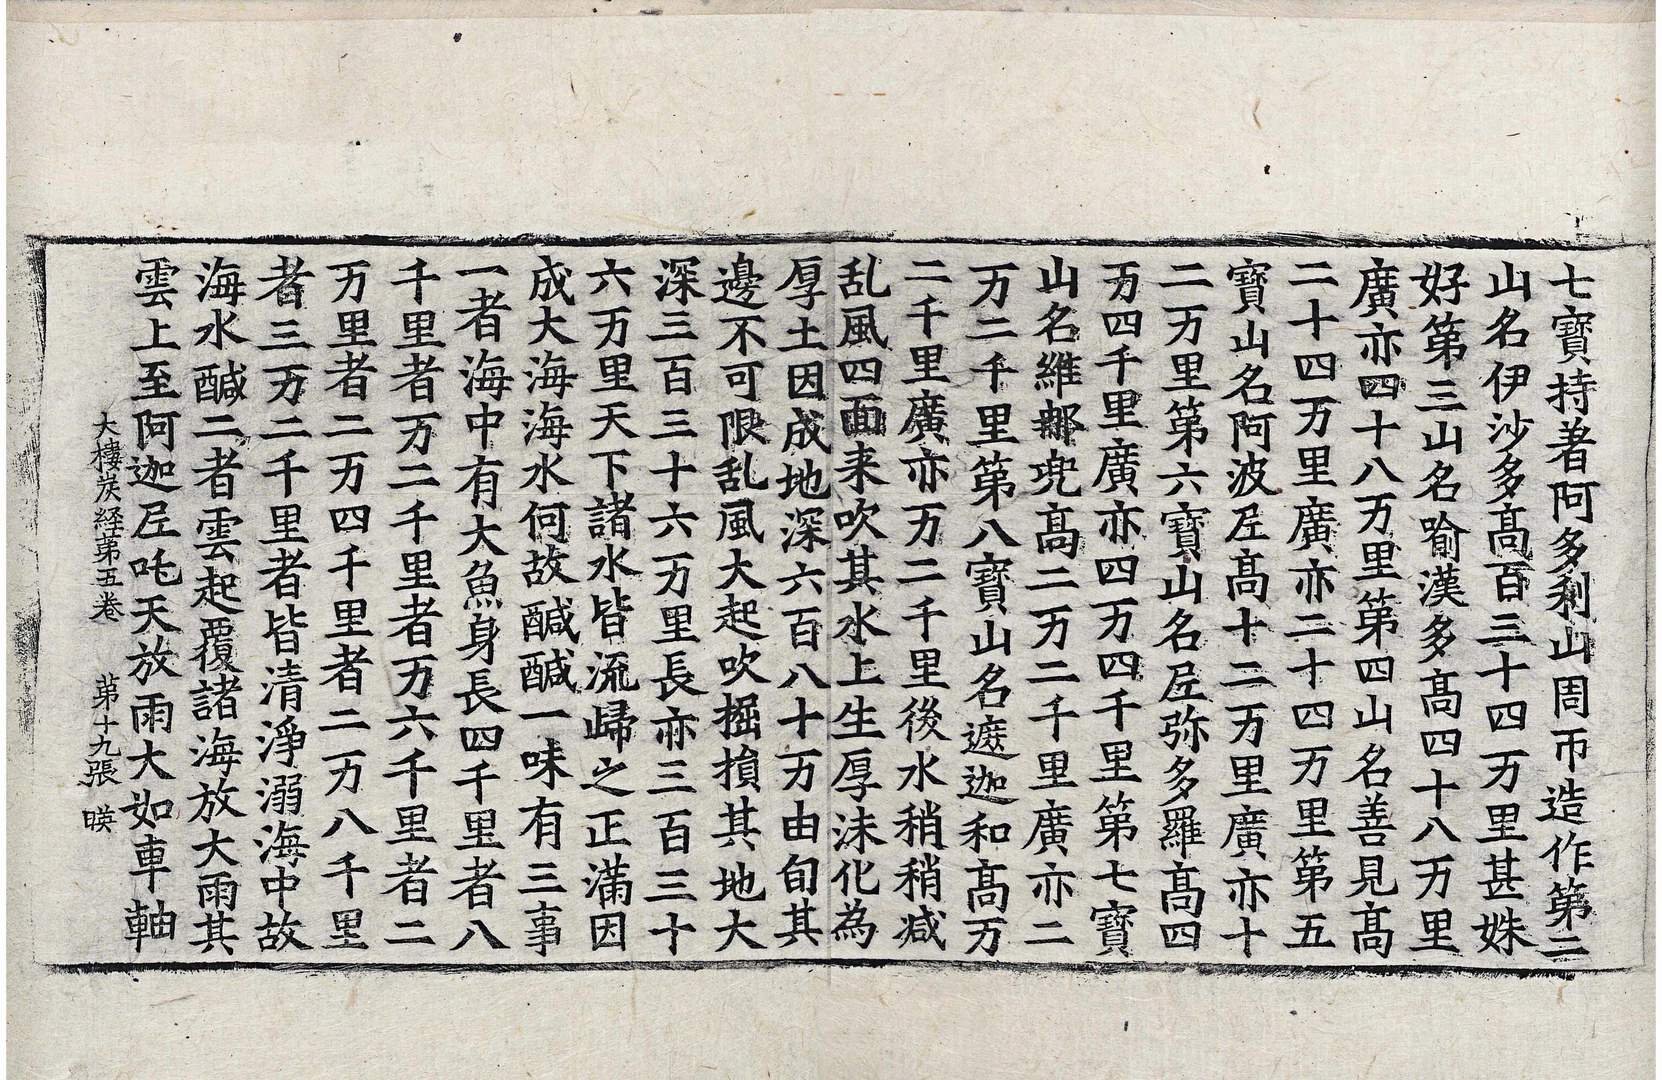 七寶持著阿多利山周帀造作第二
山名伊沙多髙百三十四万里甚姝
好第三山名喻漢多髙四十八万里
廣亦四十八万里第四山名善見髙
二十四万里廣亦二十四万里第五
寶山名阿波𡰱髙十二万里廣亦十
二万里第六寶山名𡰱弥多羅髙四
万四千里廣亦四万四千里第七寶
山名維那兜髙二万二千里廣亦二
万二千里第八寶山名遮迦和髙万
二千里廣亦万二千里後水稍稍减
乱風四面来吹其水上生厚沫化為
厚土因成地深六百八十万由旬其
邊不可限乱風大起吹掘損其地大
深三百三十六万里長亦三百三十
六万里天下諸水皆流歸之正滿因
成大海海水何故醎醎一味有三事
一者海中有大魚身長四千里者八
千里者万二千里者万六千里者二
万里者二万四千里者二万八千里
者三万二千里者皆清淨溺海中故
海水醎二者雲起覆諸海放大雨其
雲上至阿迦𡰱吒天放雨大如車軸
大樓炭経苐五卷 苐十九張 暎